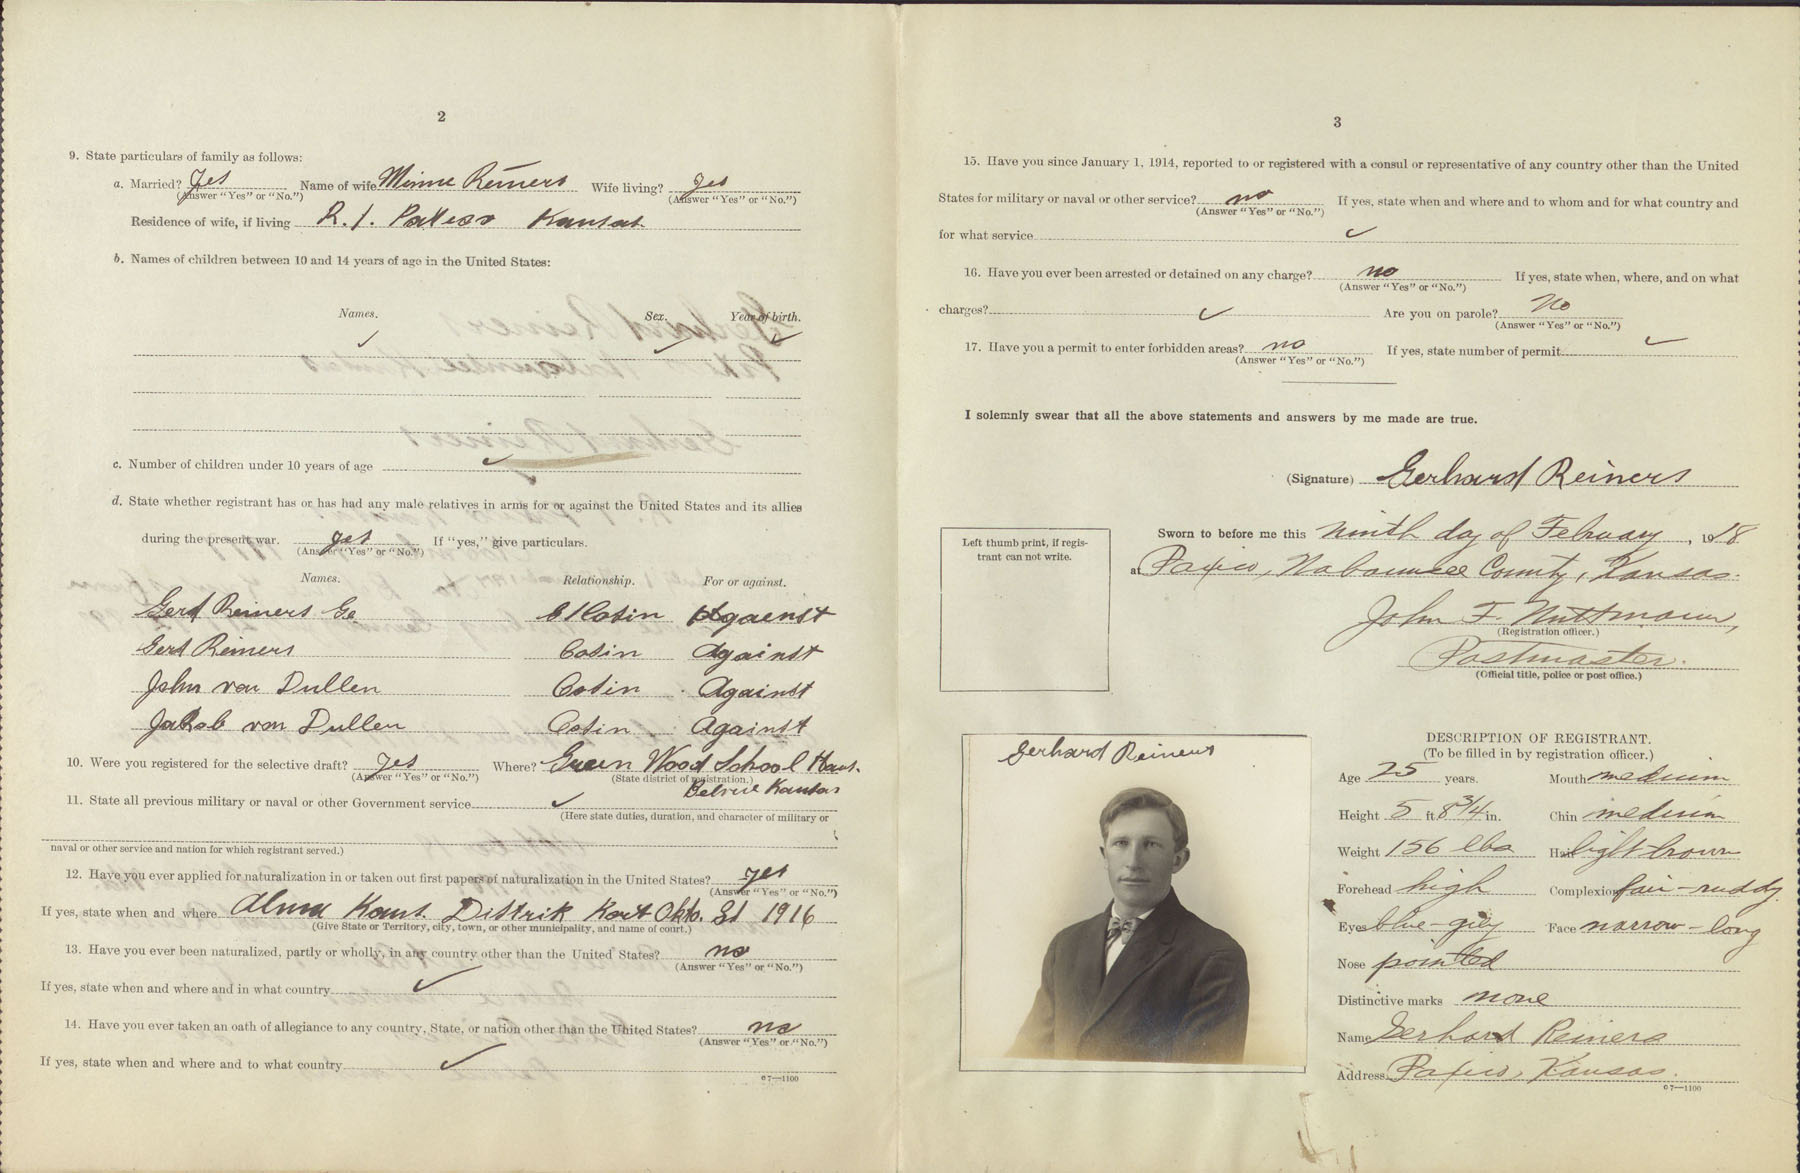 2
9. State particulars of family as follows:
a. Married? yes Name of wife Minnie Reiners Wife living? yes
(Answer "Yes" or "No.") (Answer "Yes" or "No.")
Residence of wife, if living R. 1. Kansas
b. Names of children between 10 and 14 years of age in the United States:
Names. Sex. Year of birth.
✓ ✓ ✓
c. Number of children under 10 years of age ✓
d. State whether registrant has or has had any male relatives in arms for or against the United States and its allies
during the present war. yes If "yes," give particulars.
(Answer "Yes" or "No.")
Names. Relationship. For or against.
Gerd Reiners Ge Cosin Against
Gerd Reiners Cosin Against
John von Dullen Cosin Against
Jakob von Dullen Cosin Against
10. Were you registered for the selective draft? yes Where? Green Wood School Kans.
(Answer "Yes" or "No.") (State district of registration.)
Belvue Kansas
11. State all previous military or naval or other Government service ✓
(Here state duties, duration, and character of military or
naval or other service and nation for which registrant served.)
12. Have you ever applied for naturalization in or taken out first papers of naturalization in the United States? yes
(Answer "Yes" or "No.")
If yes, state when and where Alma Kans. Distrik Kort Okto. 31 1916
(Give State or Territory, city, town, or other municipality, and name of court.)
13. Have you ever been naturalized, partly or wholly, in any country other than the United States? no
(Answer "Yes" or "No.")
If yes, state when and where and in what country ✓
14. Have you ever taken an oath of allegiance to any country, State, or nation other than the United States? no
(Answer "Yes" or "No.")
If yes, state when and where and to what country ✓
c7—1100
3
15. Have you since January 1, 1914, reported to or registered with a consul or representative of any country other than the United
States for military or naval or other service? no If yes, state when and where and to whom and for what country and
(Answer "Yes" or "No.")
for what service ✓
16. Have you ever been arrested or detained on any charge? no If yes, state when, where, and on what
(Answer "Yes" or "No.")
charges? ✓ Are you on parole? No
(Answer "Yes" or "No.")
17. Have you a permit to enter forbidden areas? no If yes, state number of permit ✓
(Answer "Yes" or "No.")
I solemnly swear that all the above statements and answers by me made are true.
(Signature) Gerhard Reiners
Left thumb print, if regis-
trant can not write.
Sworn to before me this ninth day of February, 1918
at Paxico, Wabaunsee County, Kansas.
John F. Nuttmann,
(Registration officer.)
Postmaster.
(Official title, police or post office.)
Gerhard Reiners
DESCRIPTION OF REGISTRANT.
(To be filled in by registration officer.)
Age 25 years. Mouth medium
Height 5 ft 8 3/4 in. Chin medium
Weight 156 lbs Hair light brown
Forehead high Complexion fair-ruddy
Eyes blue-grey Face narrow-long
Nose pointed
Distinctive marks none
Name Gerhard Reiners
Address Paxico, Kansas.
c7—1100